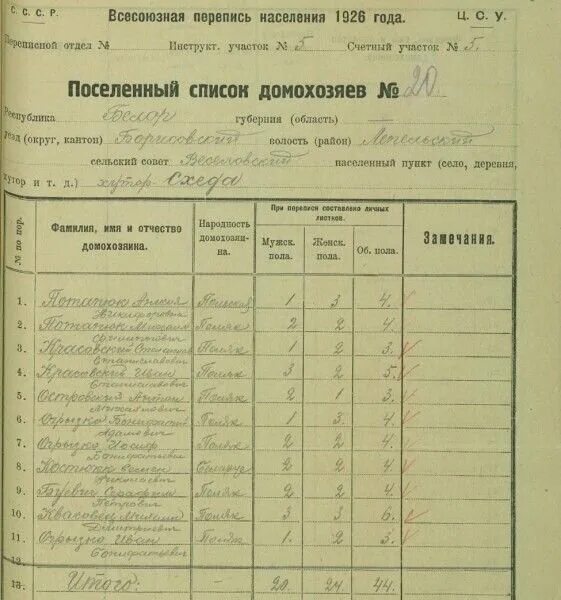 С. С. С. Р. Всесоюзная перепись населения 1926 года. Ц. С. У.
Переписной отдел № Инструкт. участок № 5 Счетный участок № 5.
Поселенный список домохозяев № 20
Республика Белор губерния (область) —
уезд (округ, кантон) Борисовский волость (район) Лепельский
сельский совет Веселовский населенный пункт (село, деревня,
хутор и т. д.) хутор Схеда
№ по пор. Фамилия, имя и отчество домохозяина. Народность домохозяина. При переписи составлено личных листков. Замечания.
Мужск. пола. Женск. пола. Об. пола.
1. Потапюк 1 3 4.
Никифорович
2. Потапюк Михаил Поляк 2 2 4.
3. Красовский Поляк 1 2 3.
Станиславович
4. Красовский Иван Поляк 3 2 5.
Станиславович
5. Островский Антон Поляк 2 1 3.
6. Огрызко Бонифатий Поляк 1 3. 4.
Адамович
7. Огрызко Иосиф Поляк 2 2 4.
Бонифатьевич
8. Костюк 2 2 4
Николаевич
9. Поляк 2 2 4.
Петрович
10. Квасовец Поляк 3 3 6.
Дмитриевич
11. Огрызко Иван Поляк 1. 2 3.
Бонифатьевич
12.
13. Итого: — 20. 24 44.